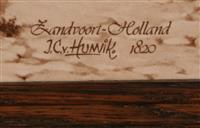 Zandvoort-Holland
J.C.v.Hunvik. 1820